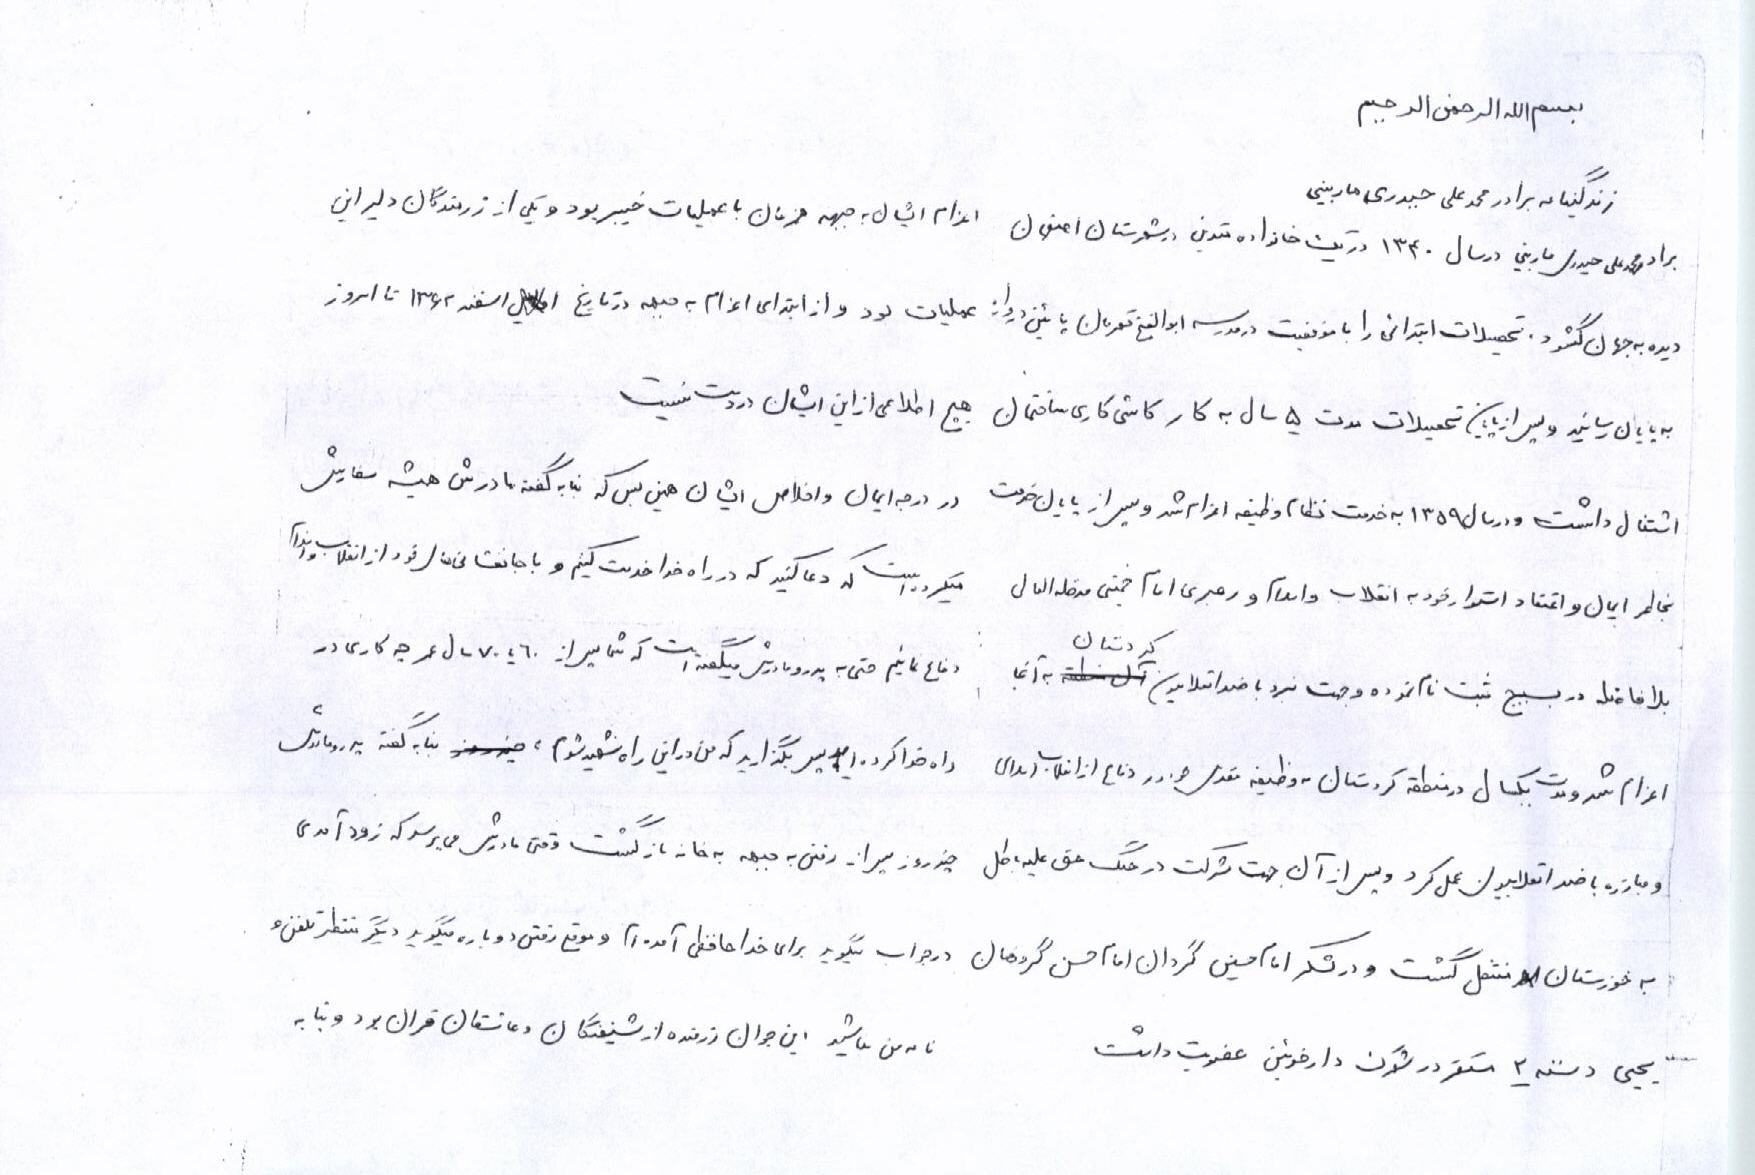 بسم الله الرحمن الرحیم
زندگینامه برادر محمد علی حیدری ماربینی
برادر محمد علی حیدری ماربینی در سال ۱۳۴۰ در یک خانواده متدین در شهرستان اصفهان
دیده به جهان گشود. تحصیلات ابتدائی را با موفقیت در مدرسه ابوالفتح قهرمان پائین دروازه
به پایان رسانید و پس از پایان تحصیلات مدت ۵ سال به کار کاشی کاری ساختمان
اشتغال داشت و در سال ۱۳۵۹ به خدمت نظام وظیفه اعزام شد و پس از پایان خدمت
بخاطر ایمان و اعتقاد استوار خود به انقلاب و اسلام و رهبری امام خمینی مدظله العالی
بلافاصله در بسیج ثبت نام نموده و جهت نبرد با ضد انقلابیون کردستان به آنجا
اعزام شد و مدت یکسال در منطقه کردستان به وظیفه مقدس خود در دفاع از انقلاب اسلامی
و مبارزه با ضد انقلابیون عمل کرد و پس از آن جهت شرکت در جنگ حق علیه باطل
به خوزستان منتقل گشت و در لشکر امام حسین گردان امام حسن گروهان
یحیی دسته ۲ مستقر در شهرک دارخوئین عضویت داشت
اعزام ایشان به جبهه همزمان با عملیات خیبر بود و یکی از رزمندگان دلیر این
عملیات بود و از ابتدای اعزام به جبهه در تاریخ اسفند ۱۳۶۲ تا امروز
هیچ اطلاعی از این ایشان در دست نیست
در درجه ایمان و اخلاص ایشان همین بس که بنا به گفته مادرش همیشه سفارش
میکرده است که دعا کنید که در راه خدا خدمت کنیم و با جانفشانی های خود از انقلاب و اسلام
دفاع نمائیم حتی به پدر و مادرش میگفته است که شما پس از ۶۰ یا ۷۰ سال عمر چه کاری در
راه خدا کرده اید پس بگذارید که من در این راه شهید شوم، بنا به گفته پدر و مادرش
چند روز پس از رفتن به جبهه به خانه بازگشت وقتی مادرش می پرسد که زود آمدی
در جواب میگوید برای خداحافظی آمده ام و موقع رفتن دوباره میگوید دیگر منتظر تلفن و
نامه من نباشید این جوان رزمنده از شیفتگان و عاشقان قرآن بود و بنا به